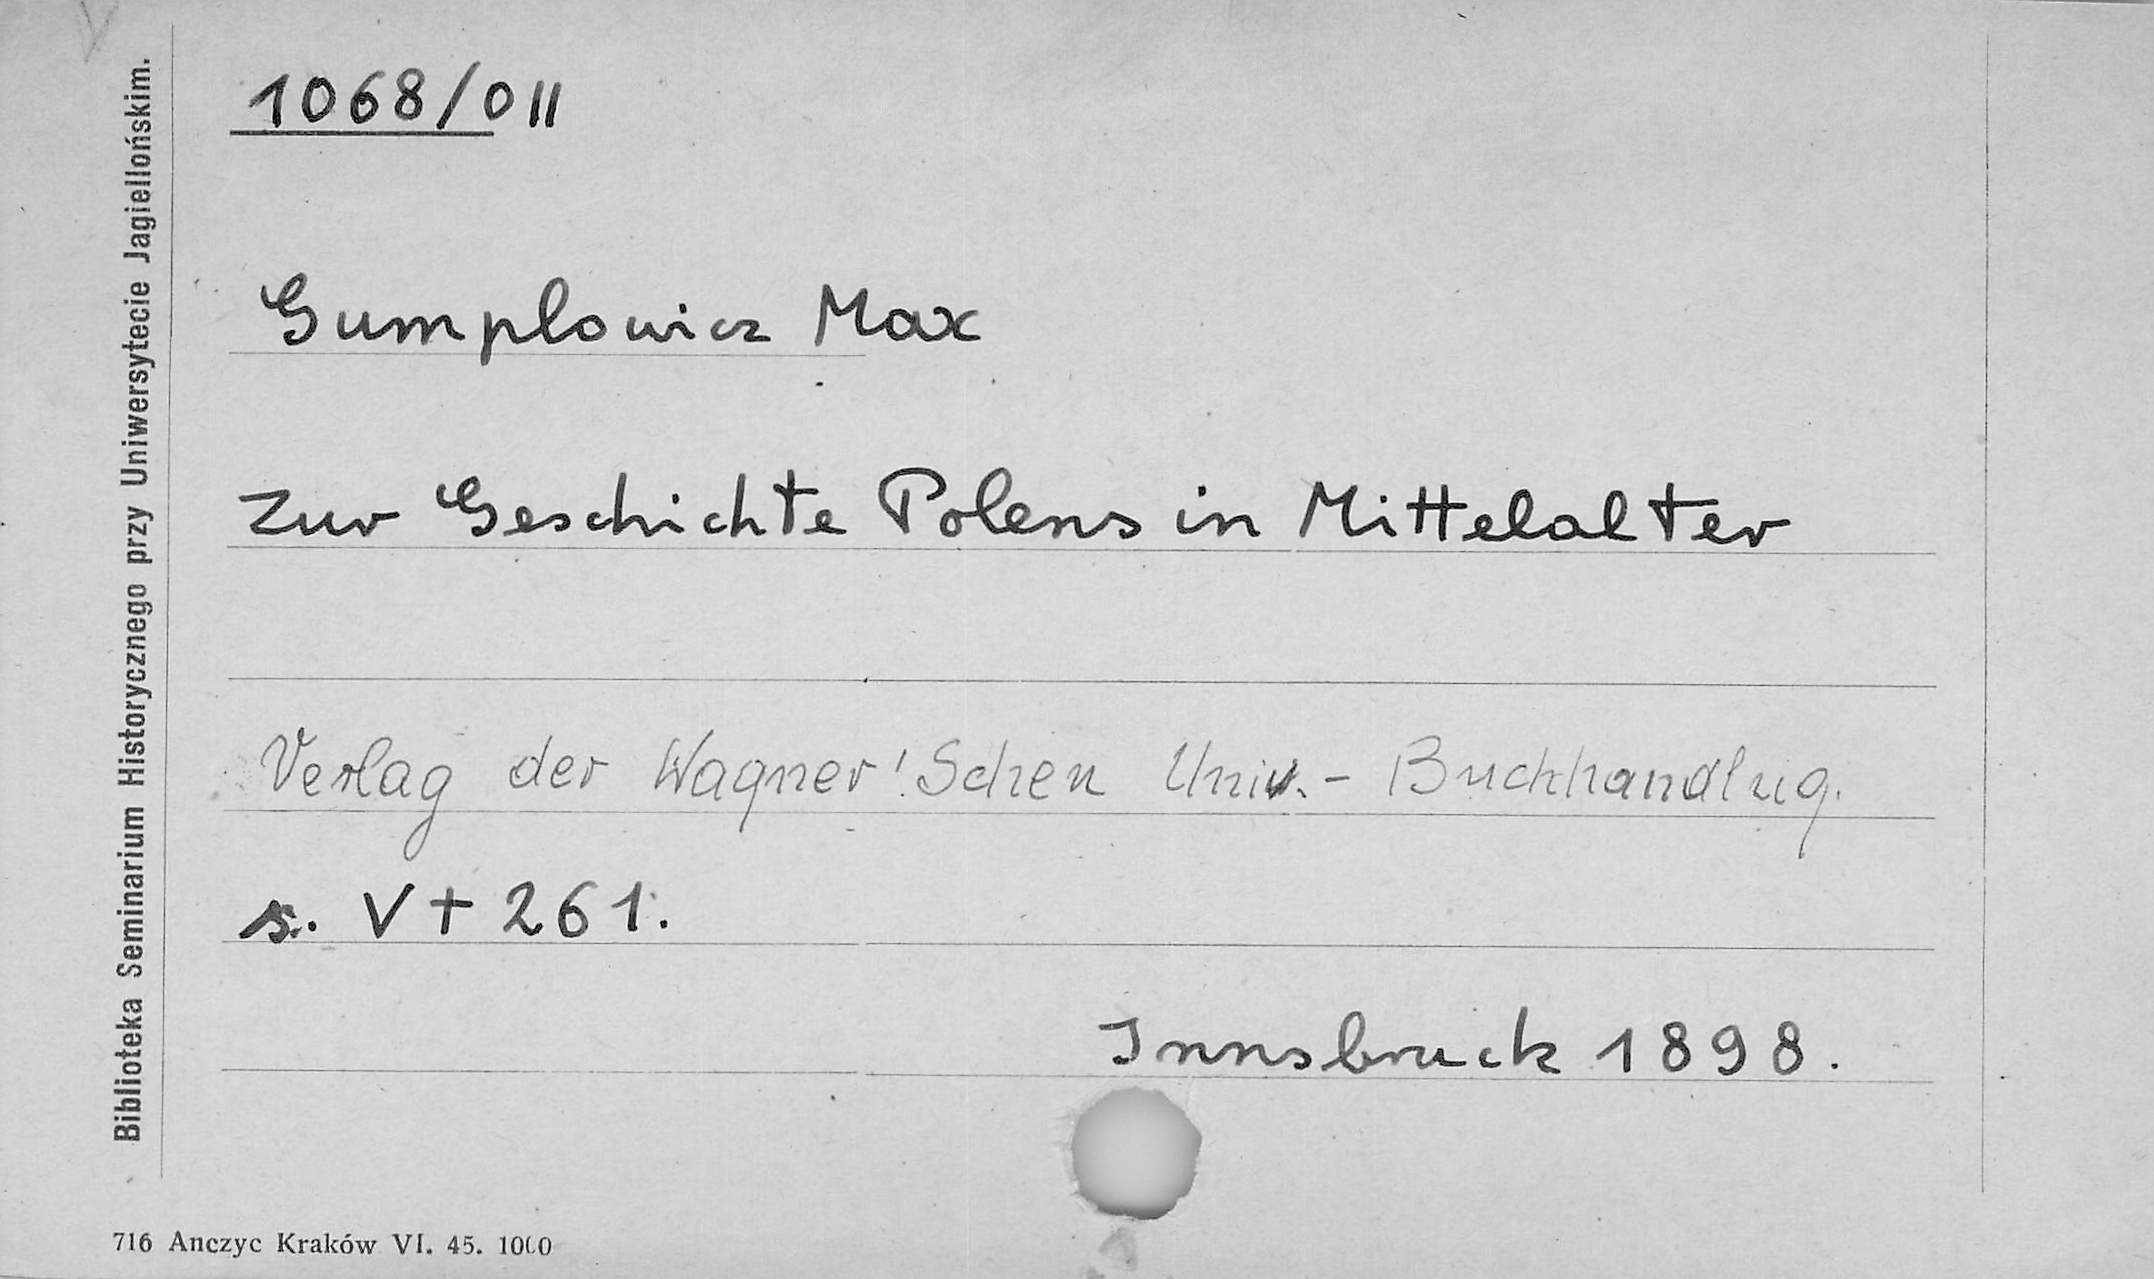 Biblioteka Seminarium Historycznego przy Uniwersytecie Jagiellońskim.
1068/0 II
Gumplowicz Max
Zur Geschichte Polens in Mittelalter
Verlag der Wagner'Schen Univ.- Buchhandlug.
s. V + 261.
Innsbruck 1898.
716 Anczyc Kraków VI. 45. 1000